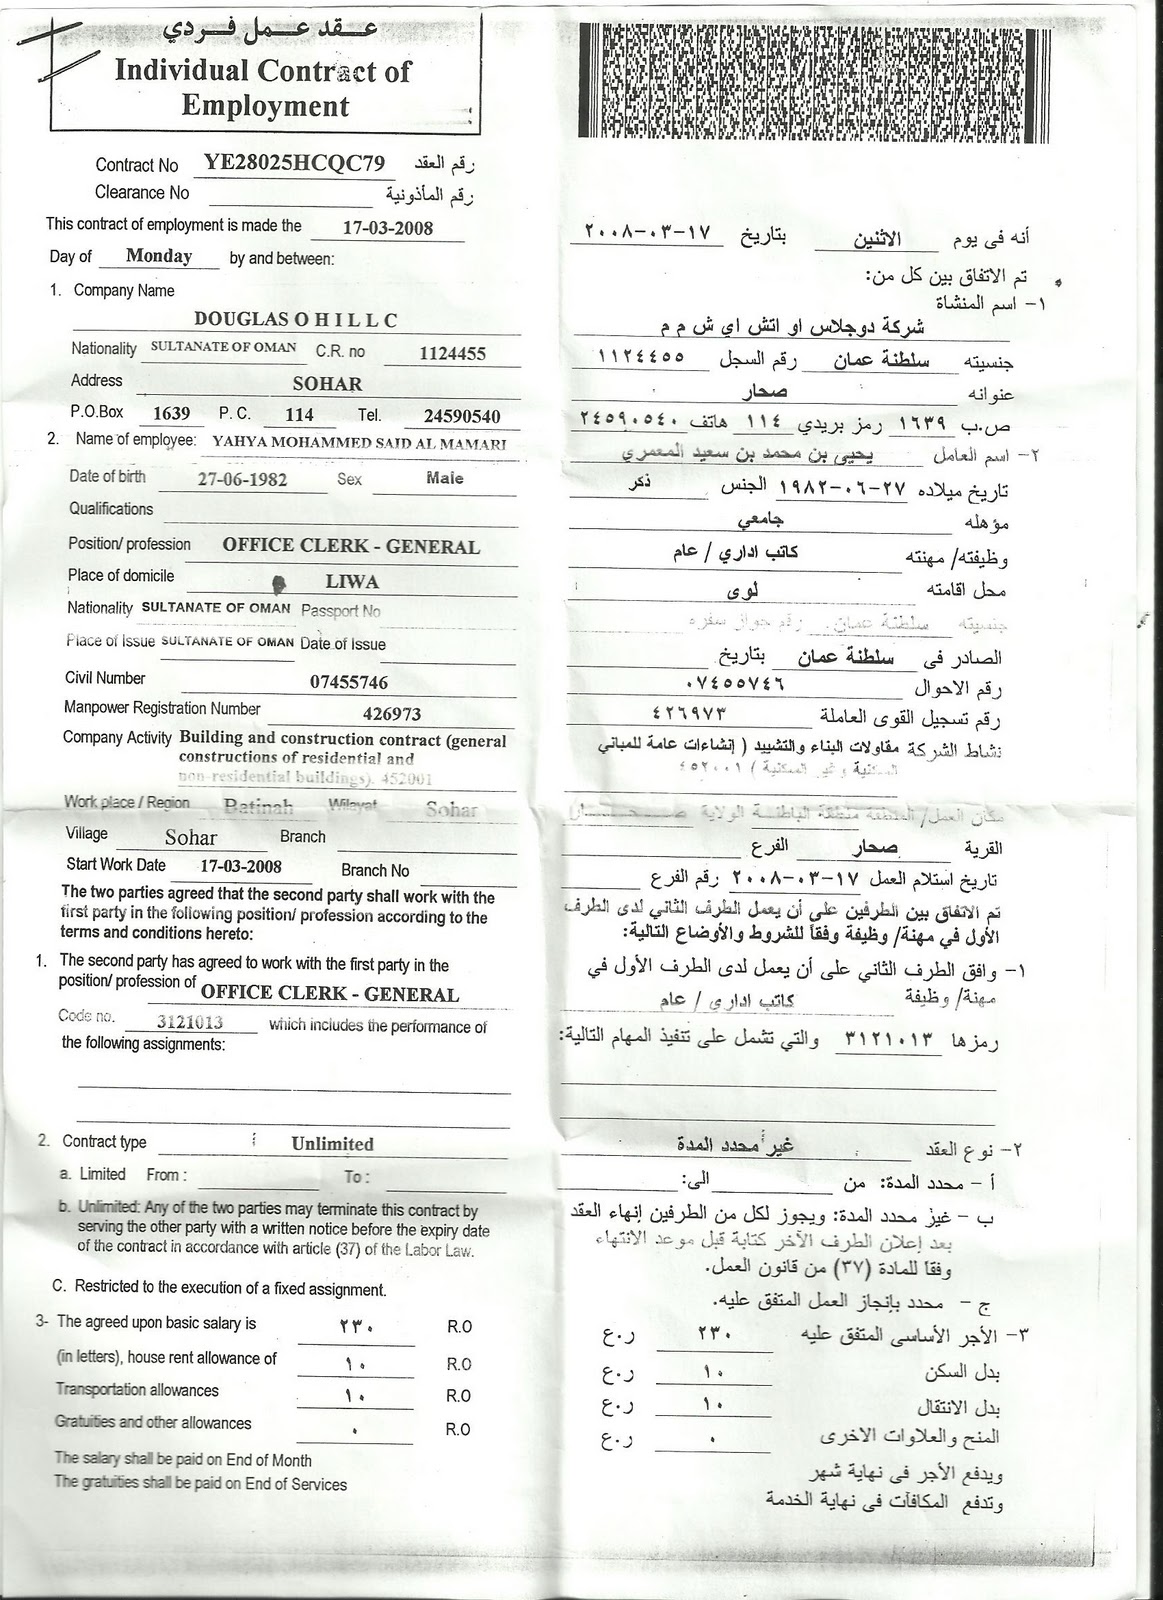 عـــقد عمـــل فـــردي
Individual Contract of
Employment
Contract No YE28025HCQC79 رقم العقد
Clearance No رقم المأذونية
This contract of employment is made the 17-03-2008
Day of Monday by and between:
1. Company Name
DOUGLAS O H I L L C
Nationality SULTANATE OF OMAN C.R. no 1124455
Address SOHAR
P.O.Box 1639 P. C. 114 Tel. 24590540
2. Name of employee: YAHYA MOHAMMED SAID AL MAMARI
Date of birth 27-06-1982 Sex Male
Qualifications
Position/ profession OFFICE CLERK - GENERAL
Place of domicile LIWA
Nationality SULTANATE OF OMAN Passport No
Place of Issue SULTANATE OF OMAN Date of Issue
Civil Number 07455746
Manpower Registration Number 426973
Company Activity Building and construction contract (general
constructions of residential and
non-residential buildings). 452001
Work place / Region Batinah Wilayat Sohar
Village Sohar Branch
Start Work Date 17-03-2008 Branch No
The two parties agreed that the second party shall work with the
first party in the following position/ profession according to the
terms and conditions hereto:
1. The second party has agreed to work with the first party in the
position/ profession of OFFICE CLERK - GENERAL
Code no. 3121013 which includes the performance of
the following assignments:
2. Contract type Unlimited
a. Limited From : To :
b. Unlimited: Any of the two parties may terminate this contract by
serving the other party with a written notice before the expiry date
of the contract in accordance with article (37) of the Labor Law.
C. Restricted to the execution of a fixed assignment.
3- The agreed upon basic salary is ٢٣٠ R.O
(in letters), house rent allowance of ١٠ R.O
Transportation allowances ١٠ R.O
Gratuities and other allowances ٠ R.O
The salary shall be paid on End of Month
The gratuities shall be paid on End of Services
أنه فى يوم الاثنين بتاريخ ١٧-٠٣-٢٠٠٨
تم الاتفاق بين كل من:
١- اسم المنشاة
شركة دوجلاس او اتش اي ش م م
جنسيته سلطنة عمان رقم السجل ١١٢٤٤٥٥
عنوانه صحار
ص.ب ١٦٣٩ رمز بريدي ١١٤ هاتف ٢٤٥٩٠٥٤٠
٢- اسم العامل يحيى بن محمد بن سعيد المعمري
تاريخ ميلاده ٢٧-٠٦-١٩٨٢ الجنس ذكر
مؤهله جامعي
وظيفته/ مهنته كاتب اداري / عام
محل اقامته لوى
جنسيته سلطنة عمان رقم جواز سفره
الصادر فى سلطنة عمان بتاريخ
رقم الاحوال ٠٧٤٥٥٧٤٦
رقم تسجيل القوى العاملة ٤٢٦٩٧٣
نشاط الشركة مقاولات البناء والتشييد ( إنشاءات عامة للمباني
السكنية وغير السكنية ) ٤٥٢٠٠١
مكان العمل/ المنطقة منطقة الباطنـــة الولاية صحـــار
القرية صحار الفرع
تاريخ استلام العمل ١٧-٠٣-٢٠٠٨ رقم الفرع
تم الاتفاق بين الطرفين على أن يعمل الطرف الثاني لدى الطرف
الأول في مهنة/ وظيفة وفقاً للشروط والأوضاع التالية:
١- وافق الطرف الثاني على أن يعمل لدى الطرف الأول في
مهنة/ وظيفة كاتب اداري / عام
رمزها ٣١٢١٠١٣ والتي تشمل على تنفيذ المهام التالية:
٢- نوع العقد غير محدد المدة
أ - محدد المدة: من الى:
ب - غير محدد المدة: ويجوز لكل من الطرفين إنهاء العقد
بعد إعلان الطرف الآخر كتابة قبل موعد الانتهاء
وفقا للمادة (٣٧) من قانون العمل.
ج - محدد بإنجاز العمل المتفق عليه.
٣- الأجر الأساسى المتفق عليه ٢٣٠ ر.ع
بدل السكن ١٠ ر.ع
بدل الانتقال ١٠ ر.ع
المنح والعلاوات الاخرى ٠ ر.ع
ويدفع الأجر فى نهاية شهر
وتدفع المكافآت فى نهاية الخدمة